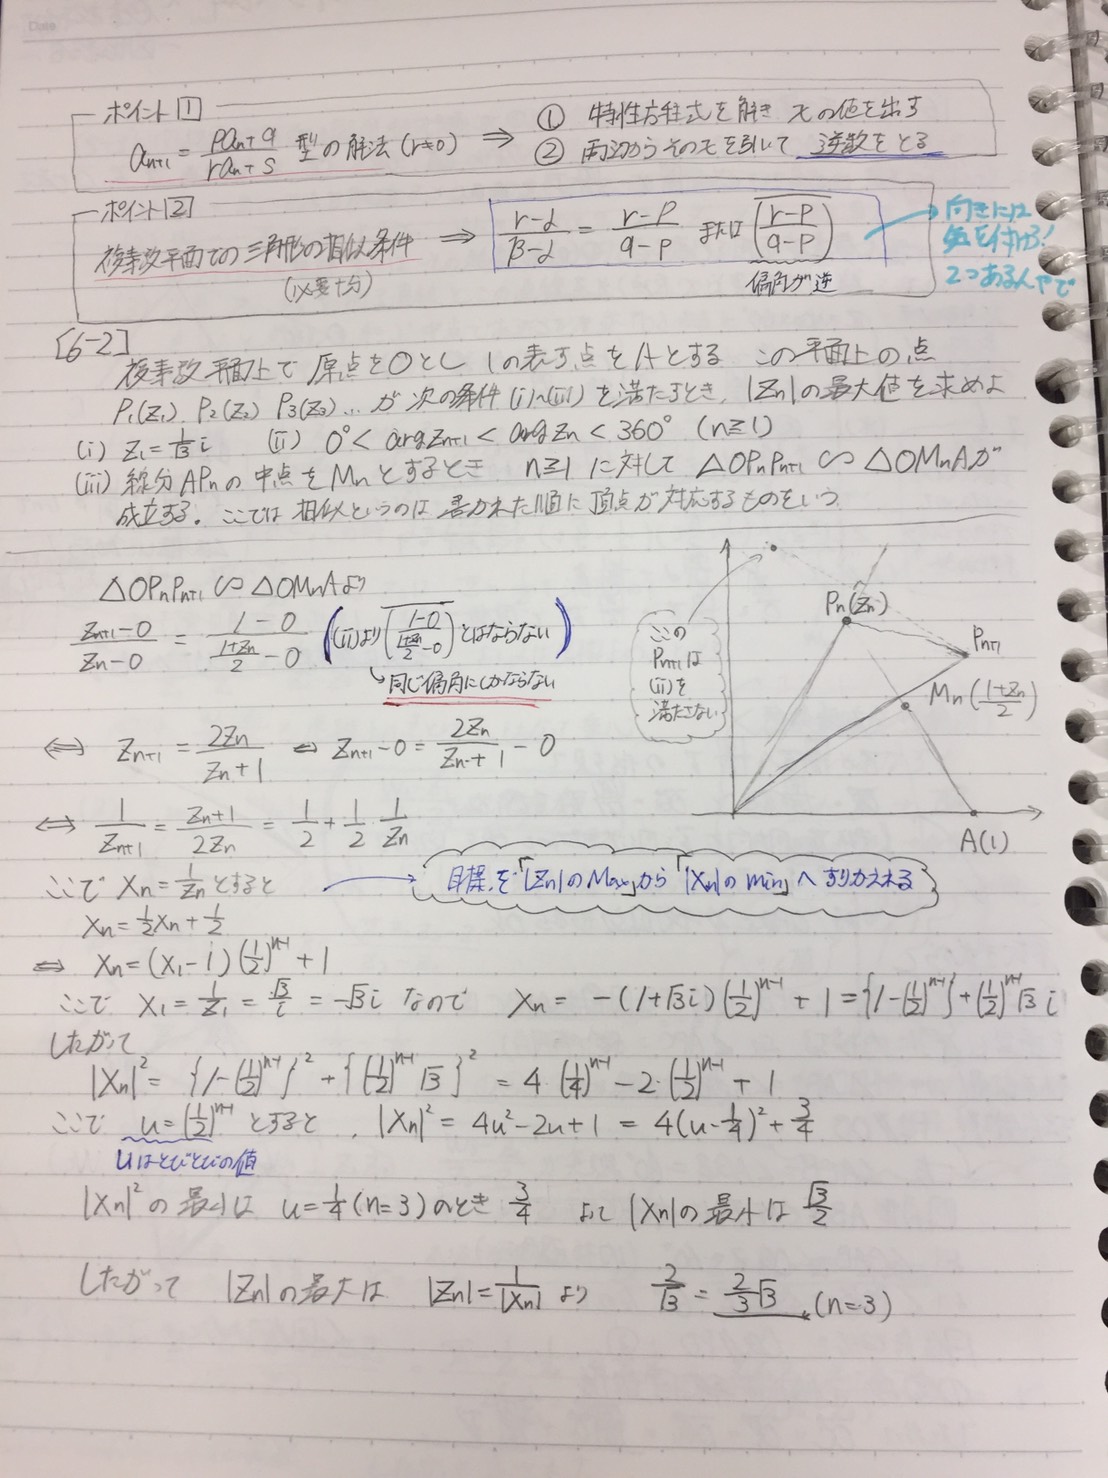 Date
ポイント1
a_{n+1} = (pa_n+q)/(ra_n+s) 型の解法 (r≠0) ⇒ ① 特性方程式を解き xの値を出す
② 両辺からそのxを引いて 逆数をとる
ポイント2
複素数平面での三角形の相似条件 ⇒ (r-α)/(β-α) = (r-p)/(q-p) または \overline{(r-p)/(q-p)} → 向きには
気を付けろ!
2つあるんやで
偏角が逆
[6-2]
複素数平面上で 原点をOとし 1の表す点をAとする この平面上の点
P₁(z₁), P₂(z₂) P₃(z₃)... が次の条件(i)~(iii)を満たすとき, |Zn|の最大値を求めよ
(i) z₁ = (1/√3)i (ii) 0° < arg Z_{n+1} < arg Z_n < 360° (n≧1)
(iii) 線分APnの中点をMnとするとき n≧1に対して △OPnP_{n+1} ∽ △OMnAが
成立する. ここでは 相似というのは 書かれた順に頂点が対応するものをいう
△OPnP_{n+1} ∽ △OMnAより
(Z_{n+1}-0)/(Z_n-0) = (1-0)/((1+Z_n)/2 - 0) ((ii)より \overline{(1-0)/((1+Z_n)/2 - 0)} とはならない)
↳同じ偏角にしかならない
この
P_{n+1}は
(ii)を
満たさない
Pn(Zn)
P_{n+1}
Mn((1+Zn)/2)
A(1)
⇔ Z_{n+1} = 2Z_n/(Z_n+1) ⇔ Z_{n+1}-0 = 2Z_n/(Z_n+1) - 0
⇔ 1/Z_{n+1} = (Z_n+1)/(2Z_n) = 1/2 + 1/2・1/Z_n
ここで Xn = 1/Zn とすると → 目標を「|Zn|のMax」から「|Xn|のmin」へすりかえる
Xn = 1/2 Xn + 1/2
⇔ Xn = (X₁-1)(1/2)^{n-1} + 1
ここで X₁ = 1/Z₁ = √3/i = -√3i なので Xn = -(1+√3i)(1/2)^{n-1} + 1 = {1-(1/2)^{n-1}} + (1/2)^{n-1}√3i
したがって
|Xn|² = {1-(1/2)^{n-1}}² + {(1/2)^{n-1}√3}² = 4・(1/4)^{n-1} - 2・(1/2)^{n-1} + 1
ここで u = (1/2)^{n-1} とすると, |Xn|² = 4u²-2u+1 = 4(u-1/4)² + 3/4
uはとびとびの値
|Xn|²の最小は u = 1/4 (n=3)のとき 3/4 よって |Xn|の最小は √3/2
したがって |Zn|の最大は |Zn| = 1/|Xn| より 2/√3 = 2/3 √3 (n=3)